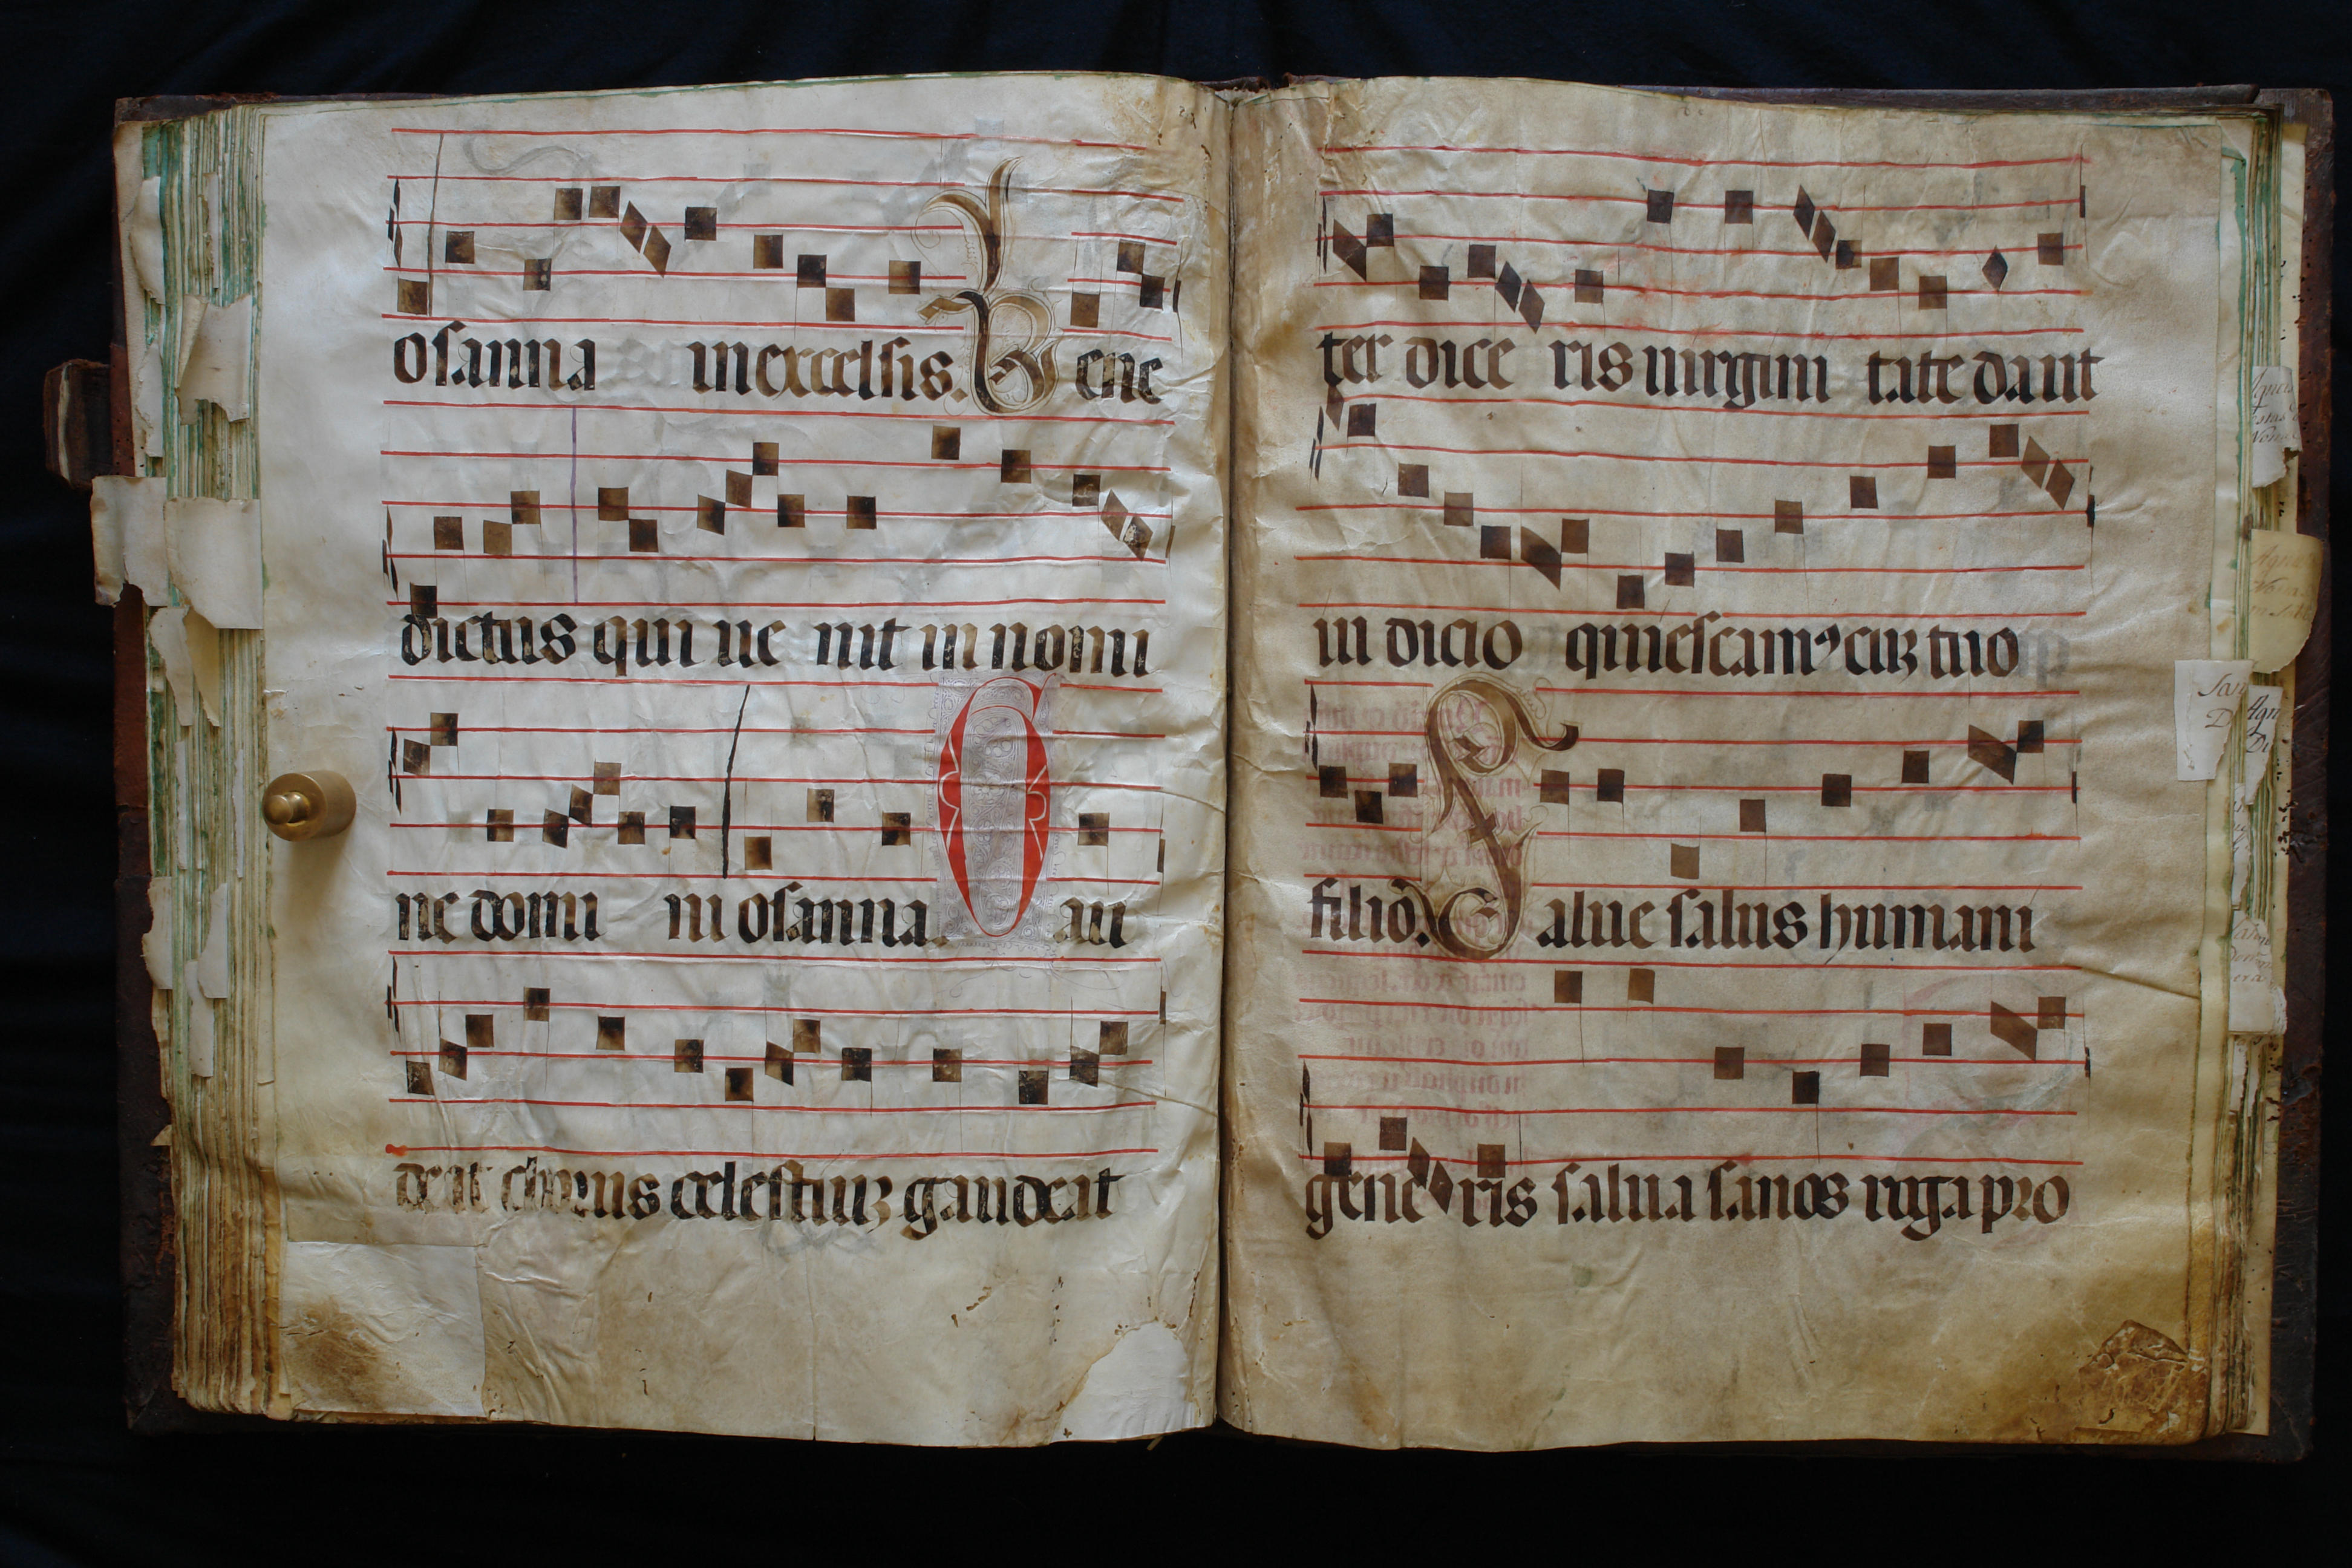 osanna in excelsis. Bene
dictus qui ue nit in nomi
ne domi ni osanna. Gau
deat chorus celestiuʒ gaudeat
ter dice ris uirgini tate dant
iu dicio quiescamꝰ cuʒ tuo
filio. Salue salus humani
gene ris salua sanos rigapro